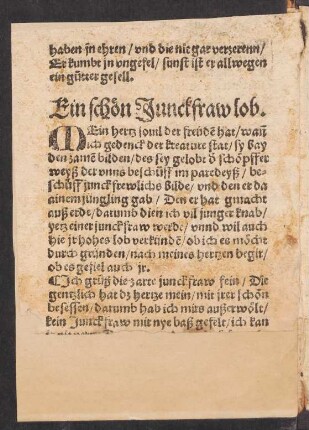 haben jn ehren / vnd die nit gar verzeren /
Er kumbt jn vngefel / sunst ist er allwegen
ein gůtter gesell.
Ein schön Junckfraw lob.
MEin hertz souil der freüdẽ hat / wañ
ich gedenck der kreature stat / sy bay
den zamẽ bilden / des sey gelobt ð schöpffer
weyß der vnns beschüff im paredeyß / be-
schüff junckfrewliche bilde / vnd den er da
ainem jungling gab / Den er hat gmacht
auß erdt / darumb dien ich vil junger knab /
yetz einer junckfraw werde / vnnd wil auch
hie jr hohes lob verkündẽ / ob ich es möcht
durch gründen / nach meines hertzen begir /
ob es gefiel auch jr.
¶Ich grüß die zarte junckfraw fein / Die
gentzlich hat dz hertze mein / mit jrer schön
besessen / darumb hab ich mirs außerwölt /
kein Junckfraw mit nye baß gefelt / ich kan